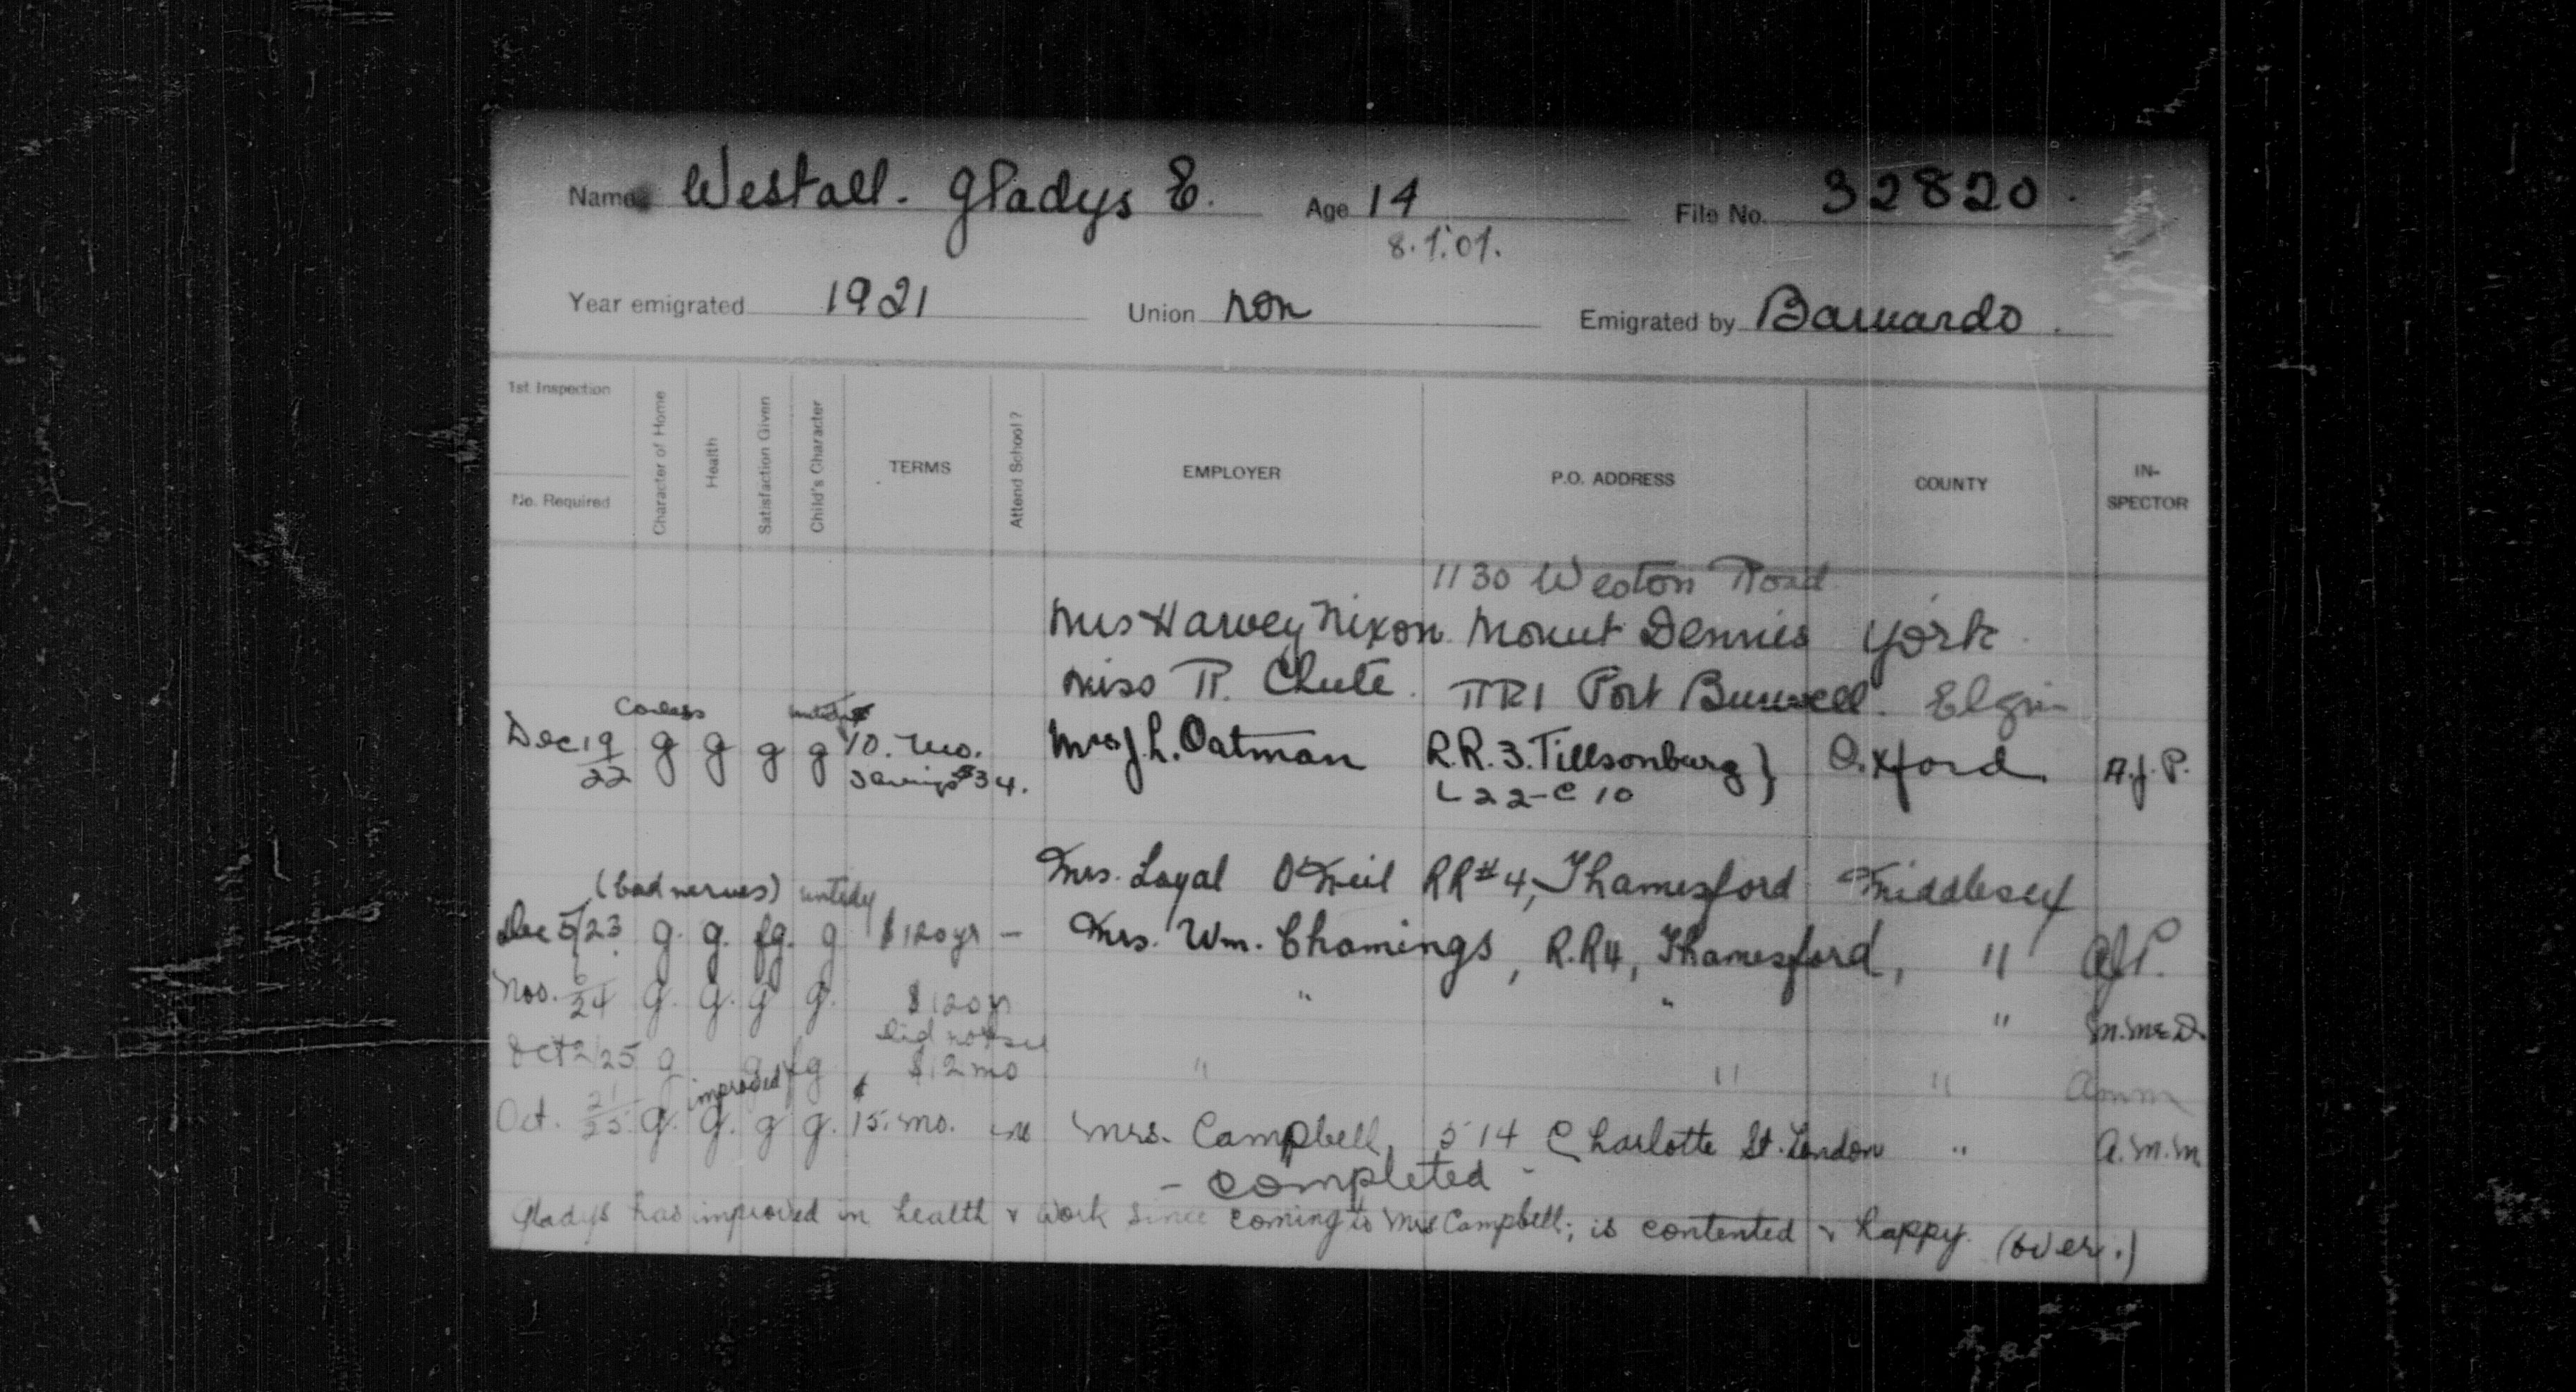 Name Westall. Gladys E. Age 14 File No. 32820.
8.1.07.
Year emigrated 1921 Union non Emigrated by Barnardo.
1st Inspection
No. Required
Character of Home
Health
Satisfaction Given
Child's Character
TERMS
Attend School?
EMPLOYER
P.O. ADDRESS
COUNTY
IN-
SPECTOR
1130 Weston Road
Mrs Harvey Nixon. Mount Dennis York
Miss R. Chute. RR1 Port Burwell. Elgin
untidy
Dec 19/22 g g g g $10. mo. Mrs J. L. Oatman R.R. 3. Tillsonburg } Oxford. A.J.P.
Savings $34. L 22 - C 10
Mrs. Loyal O'Neil RR#4, Thamesford Middlesex
(bad nerves) untidy
Dec 5/23 g. g. fg. g $120 yr — Mrs. Wm. Chamings, R.R4, Thamesford, " AJP.
Nov. 6/24 g. g. g g. $120 yr " " " M.McD.
did not see
Oct 2/25 g g fg $12 mo " " " Amm
improved
Oct. 21/25 g. g. g g. $15. mo. Mrs. Campbell, 514 Charlotte St. London " A.M.M
- completed -
Gladys has improved in health & work since coming to Mrs Campbell; is contented & happy. (over.)